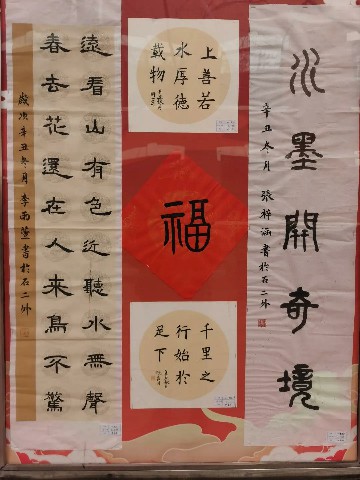 水墨開奇境
辛丑冬月 張梓涵書於石二外
上善若
水厚德
載物
福
千里之
行始於
足下
遠看山有色近聽水無聲
春去花還在人來鳥不驚
歲次辛丑冬月李雨萱書於石二外